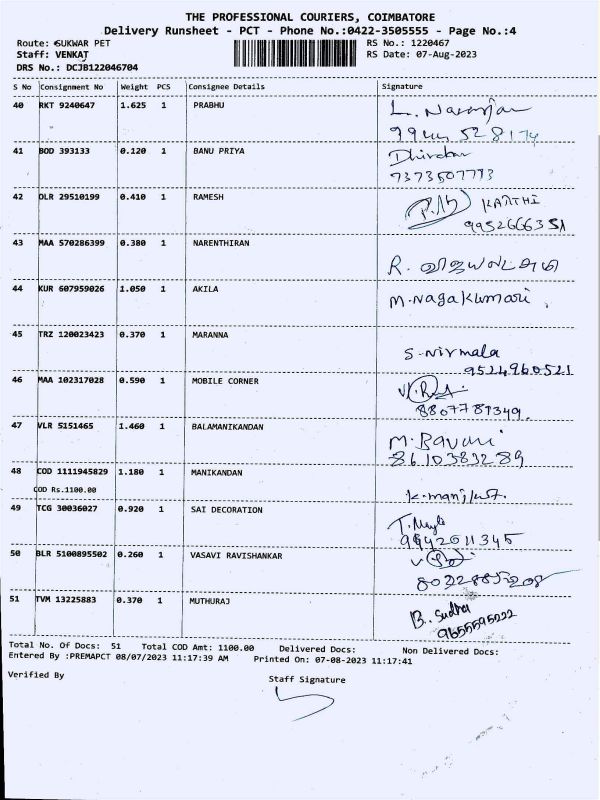 THE PROFESSIONAL COURIERS, COIMBATORE
Delivery Runsheet - PCT - Phone No.:0422-3505555 - Page No.:4
Route: SUKWAR PET
RS No.: 1220467
Staff: VENKAT
RS Date: 07-Aug-2023
DRS No.: DCJB122046704
S No Consignment No Weight PCS Consignee Details Signature
40 RKT 9240647 1.625 1 PRABHU
41 BOD 393133 0.120 1 BANU PRIYA
7373507773
42 DLR 29510199 0.410 1 RAMESH KARTHI
9952666351
43 MAA 570286399 0.380 1 NARENTHIRAN
R. விஜயலட்சுமி
44 KUR 607959026 1.050 1 AKILA M.Nagakumari .
45 TRZ 120023423 0.370 1 MARANNA
S.Nirmala
9524960521
46 MAA 102317028 0.590 1 MOBILE CORNER
8807789349.
47 VLR 5151465 1.460 1 BALAMANIKANDAN
8610383289
48 COD 1111945829 1.180 1 MANIKANDAN
COD Rs.1100.00
49 TCG 30036027 0.920 1 SAI DECORATION
9942011345
50 BLR 5100895502 0.260 1 VASAVI RAVISHANKAR
51 TVM 13225883 0.370 1 MUTHURAJ
B. Sudha
9655595022
Total No. Of Docs: 51 Total COD Amt: 1100.00 Delivered Docs: Non Delivered Docs:
Entered By :PREMAPCT 08/07/2023 11:17:39 AM Printed On: 07-08-2023 11:17:41
Verified By
Staff Signature